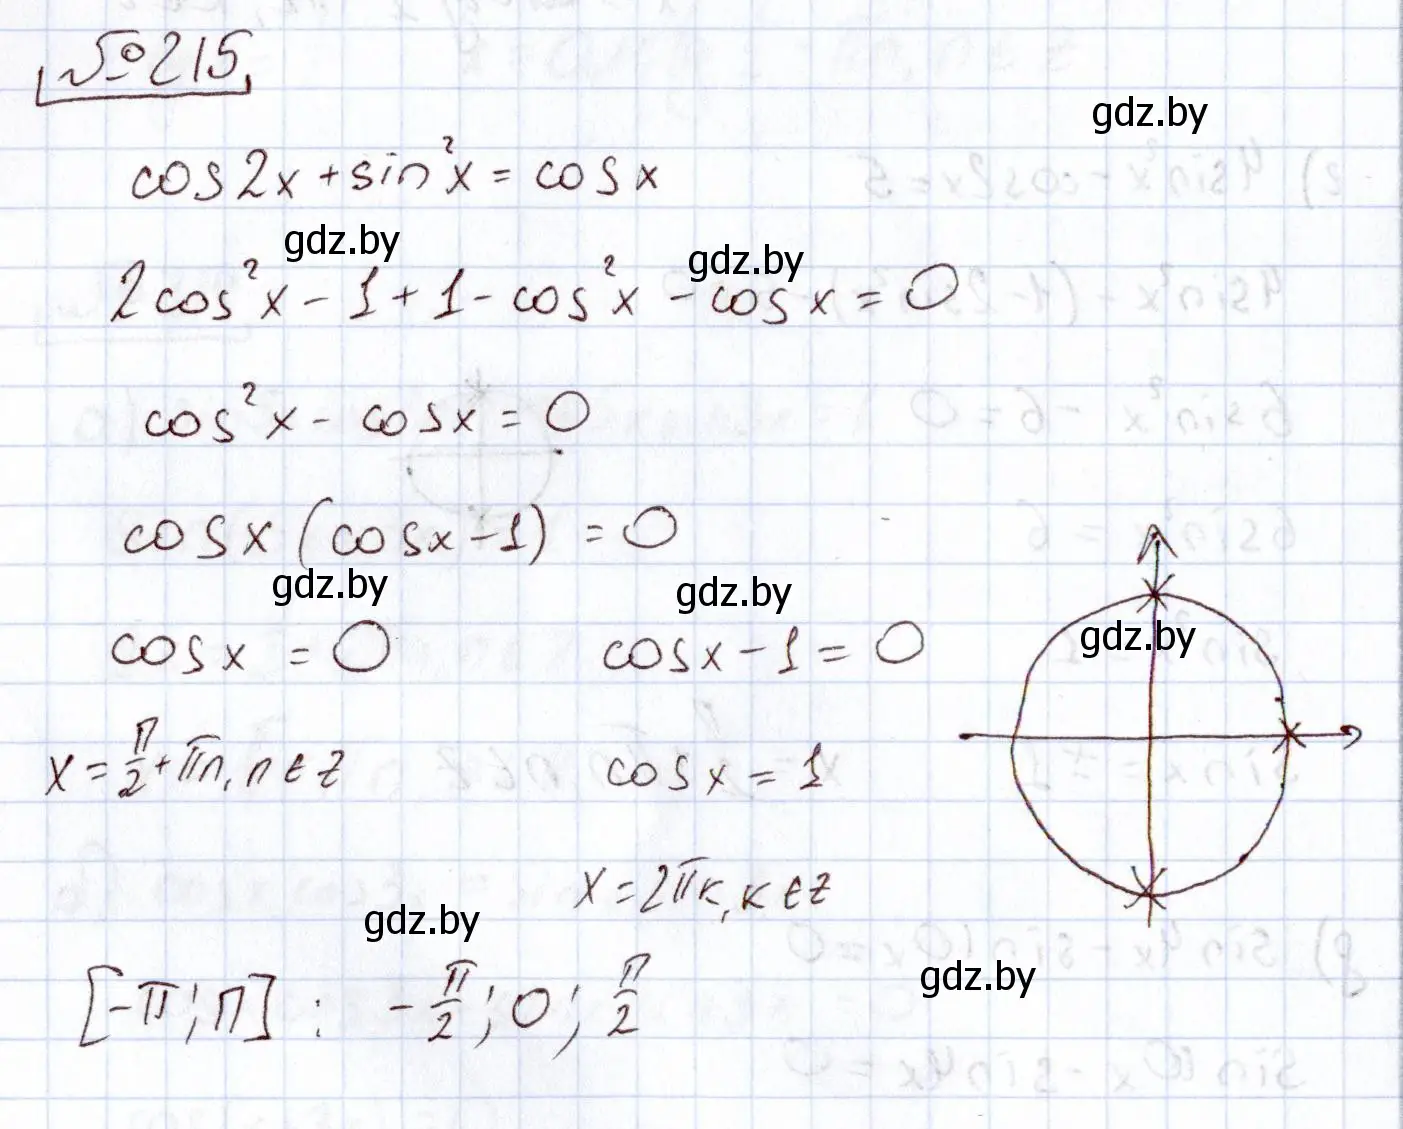 №215
gdz.by
cos2x + sin²x = cosx
gdz.by
gdz.by
2cos²x - 1 + 1 - cos²x - cosx = 0
cos²x - cosx = 0
cosx (cosx - 1) = 0
gdz.by gdz.by
gdz.by
cosx = 0 cosx - 1 = 0
x = π/2 + πn, n ∈ z cosx = 1
x = 2πk, k ∈ z
gdz.by
gdz.by
[-π; π] : -π/2; 0; π/2